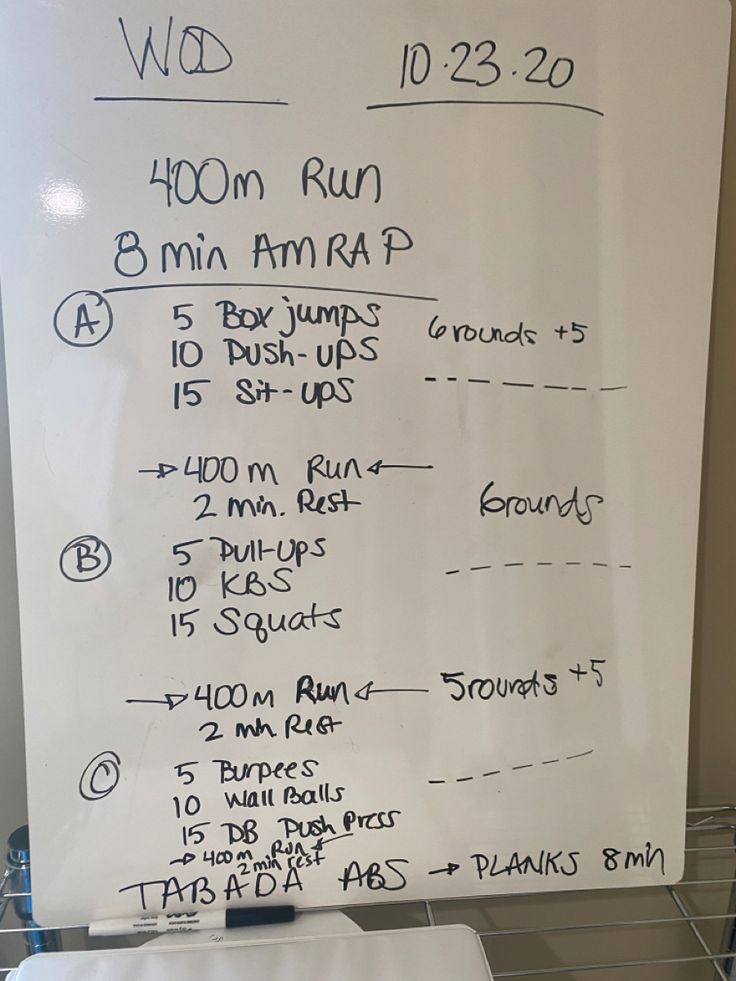 WOD 10.23.20
400m Run
8 min AMRAP
A 5 Box jumps 6 rounds +5
10 Push-ups
15 Sit-ups
→ 400 m Run ←
2 min. Rest 6 rounds
B 5 Pull-ups
10 KBS
15 Squats
→ 400m Run ← 5 rounds +5
2 min Rest
C 5 Burpees
10 Wall Balls
15 DB Push Press
→ 400m Run ←
2 min rest
TABADA ABS → PLANKS 8 min